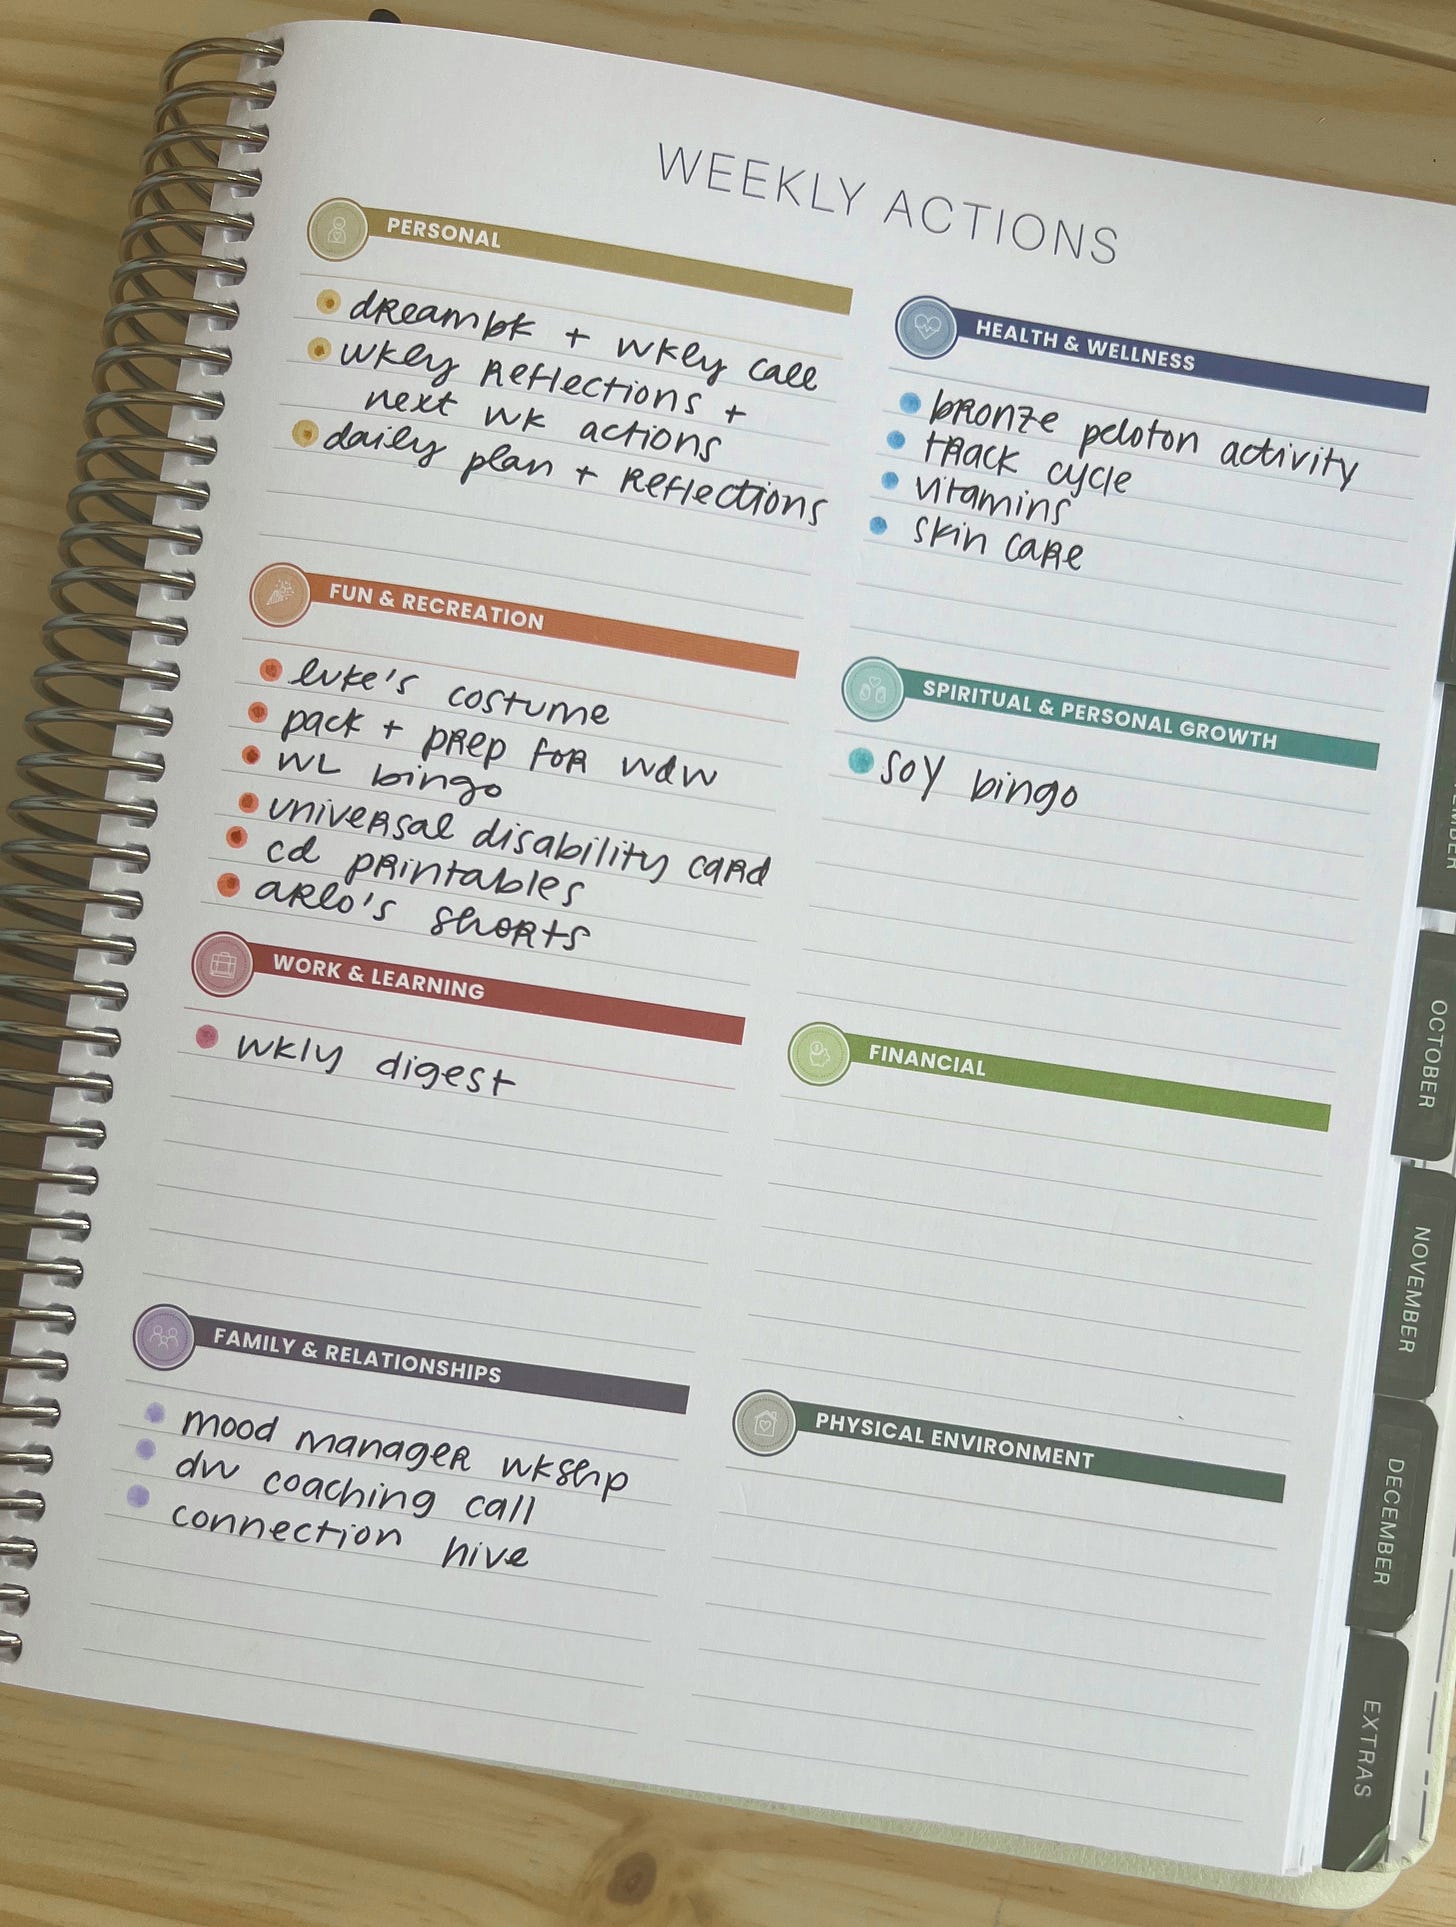 WEEKLY ACTIONS
PERSONAL
dreambk + wkly call
wkly reflections +
next wk actions
daily plan + reflections
FUN & RECREATION
luke's costume
pack + prep for wdw
WL bingo
universal disability card
cd printables
arlo's shorts
WORK & LEARNING
wkly digest
FAMILY & RELATIONSHIPS
mood manager wkshp
dw coaching call
connection hive
HEALTH & WELLNESS
bronze peloton activity
track cycle
vitamins
skin care
SPIRITUAL & PERSONAL GROWTH
SOY bingo
FINANCIAL
PHYSICAL ENVIRONMENT
OCTOBER
NOVEMBER
DECEMBER
EXTRAS